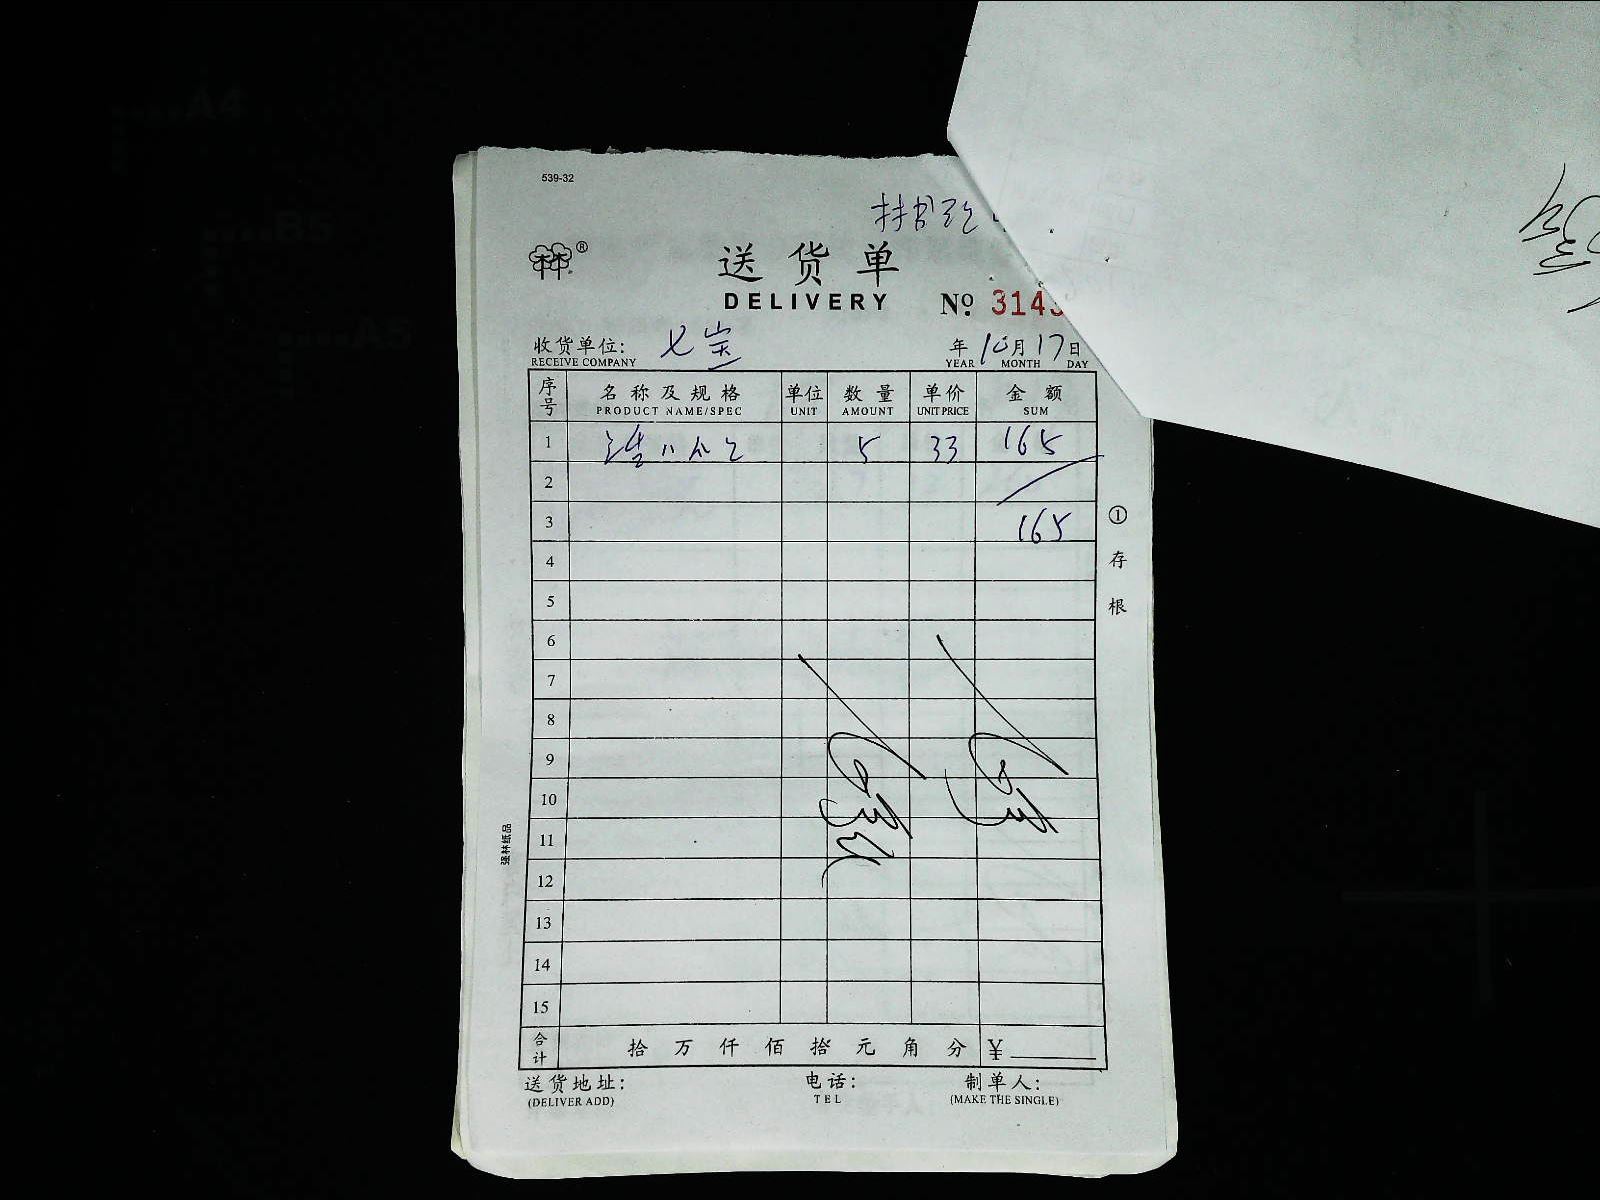 539-32
送货单
DELIVERY
№ 314
收货单位: 七宝 年10月17日
RECEIVE COMPANY YEAR MONTH DAY
序号 名称及规格 单位 数量 单价 金额
PRODUCT NAME/SPEC UNIT AMOUNT UNIT PRICE SUM
1 5 33 165
2
3 165
4
5
6
7
8
9
10
11
12
13
14
15
合计 拾万仟佰拾元角分 ¥
送货地址: 电话: 制单人:
(DELIVER ADD) TEL (MAKE THE SINGLE)
①存根
强林纸品
A4
B5
A5